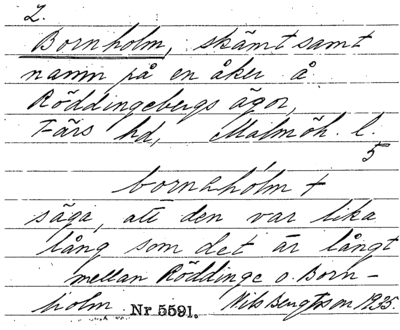 2.
Bornholm, skämtsamt
namn på en åker å
Röddingebergs ägor,
Färs hd, Malmöh. l.
5
bornhólm +
säga, att den var lika
lång som det är långt
mellan Röddinge o. Born-
holm. Nr 5591. Nils Bengtsson 1935.